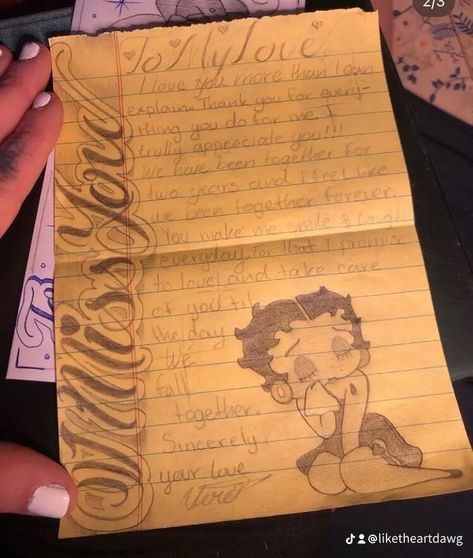 2/3
I Miss You
To My Love
I love you more than I can
explain. Thank you for every-
thing you do for me. I
trully appreciate you!!!
We have been together for
two years and I feel like
we been together forever.
You make me smile & laugh
everyday. For that I promise
to love and take care
of you til
the day
we
fall
together.
Sincerely,
your love
@liketheartdawg